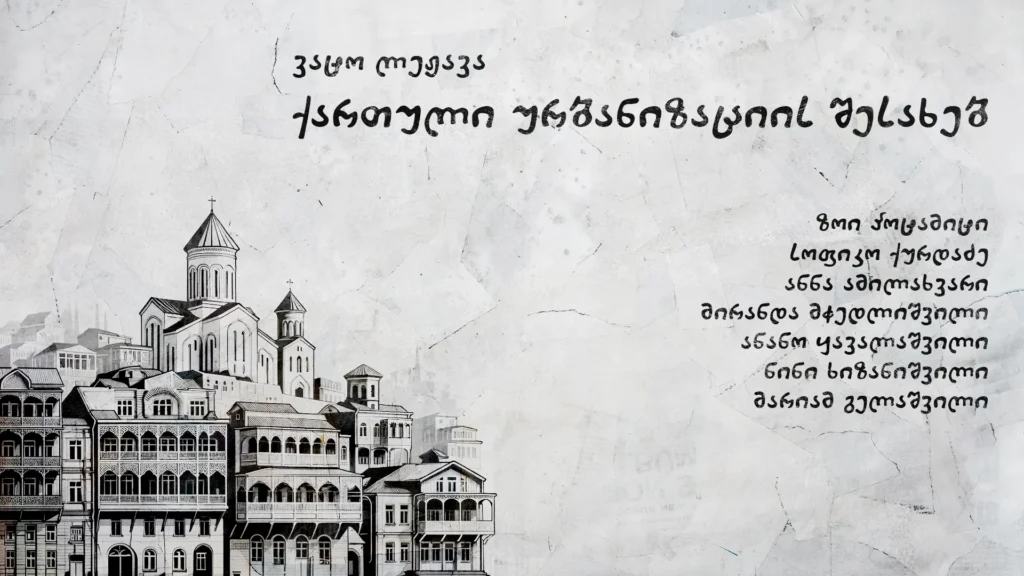 ვატო ლეჟავა
ქართული ურბანიზაციის შესახებ
ზოი ქოცამიცი
სოფიკო ქურდაძე
ანნა ამილახვარი
მირანდა მჭედლიშვილი
ანანო ყავალაშვილი
ნინი ხიზანიშვილი
მარიამ გელაშვილი